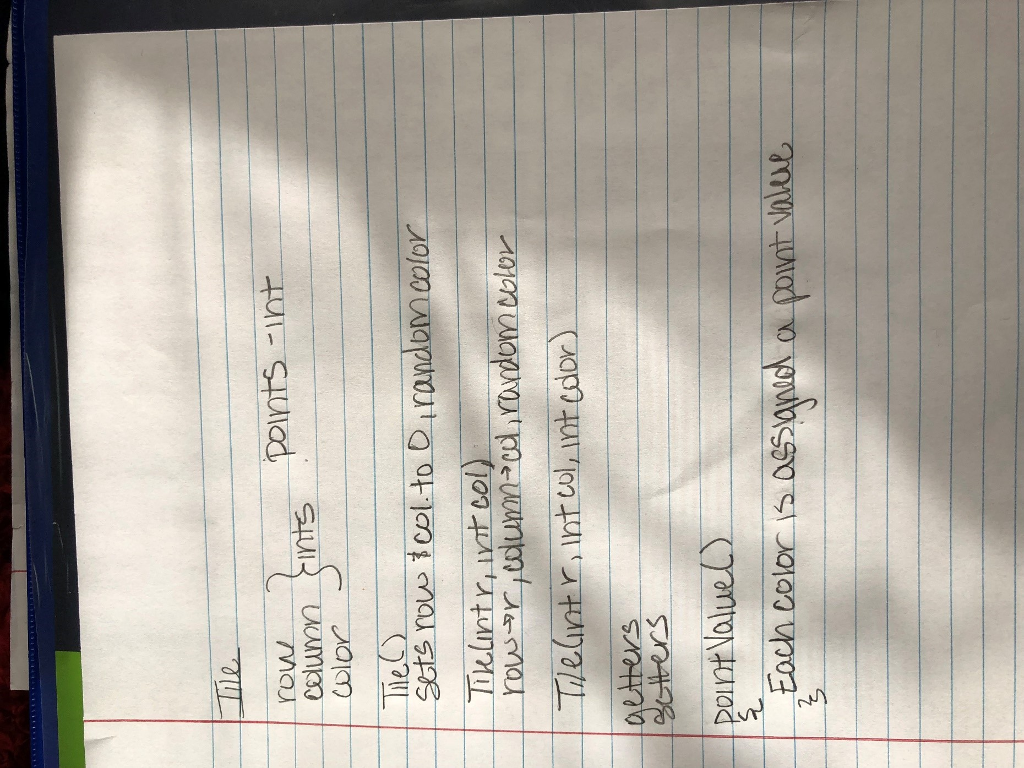 Tile
row } ints points - int
column
color
Tile()
sets row & col. to 0, random color
Tile(int r, int col)
row→r, column→col, random color
Tile(int r, int col, int color)
getters
setters
pointValue()
{
Each color is assigned a point value
}